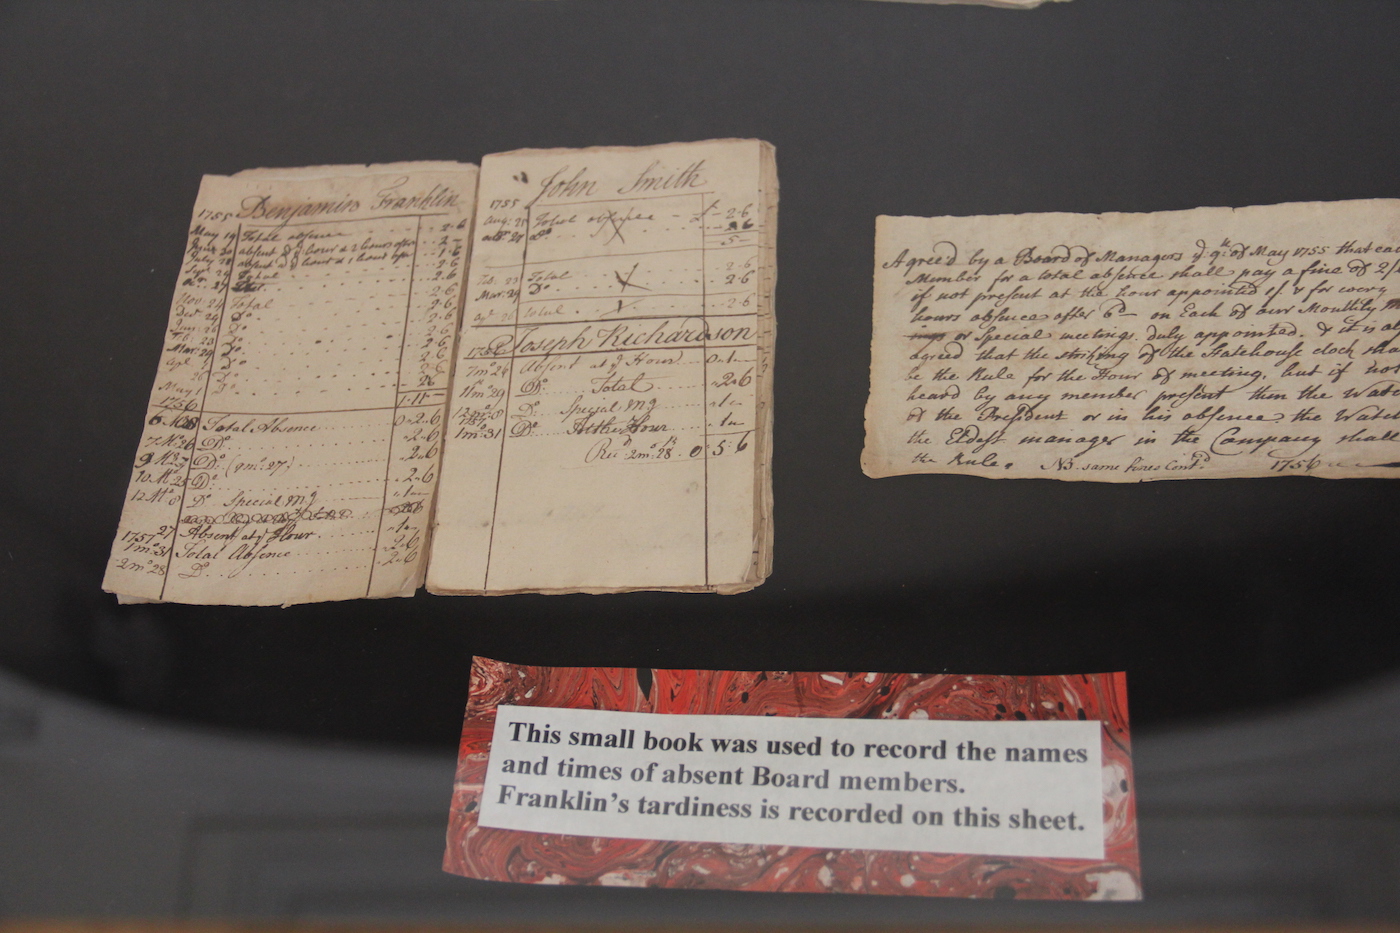 1755 Benjamin Franklin
May 19 Total absence 2.6
absent ye hour & 2 hours after 2
July absent ye hour & 1 hour after 1.6
Total 2.6
Do 2.6
Nov. 24 Total 2.6
Decr. 29 Do 2.6
Do 2.6
Feb. 23 Do 2.6
Mar. 29 Do 2.6
Apl. Do 2.6
Do
May 1 Do 26
1756 1.11
Total Absence 0.2.6
7 Mo 26 Do 2.6
9 Mo Do (9 mo. 27) 2.6
10 Mo 25 Do 2.6
12 Mo 8 Do Special Mg 1
27 Absent at ye Hour 1
1757
1 mo. 31 Total Absence 2.6
2 mo 28 Do 2.6
John Smith
1755
Aug. 25 Total absence £ 2.6
Do 2.6
5
Feb. 23 Total 2.6
Mar. 29 Do 2.6
total 2.6
Joseph Richardson
1756
7 mo 26 Absent at ye Hour 0 1
11 mo 29 Do Total 2.6
12 mo 8 Do Special Mg 1
1 mo 31 Do At the Hour 1
Recd 2 mo. 28. 0 5 6
Agree'd by a Board of Managers ye 9th of May 1755 that each
Member for a total absence shall pay a fine of 2/
if not present at the hour appointed 1/. & for every
hours absence after 6d on Each of our Monthly
or Special meetings. duly appointed. & it is
agreed that the striking of the Statehouse clock
be the Rule for the Hour of meeting, but if not
heard by any member present then the
of the President or in his absence the
the Eldest manager in the Company shall
the Rule. NB same fines Contd 1756
This small book was used to record the names
and times of absent Board members.
Franklin's tardiness is recorded on this sheet.